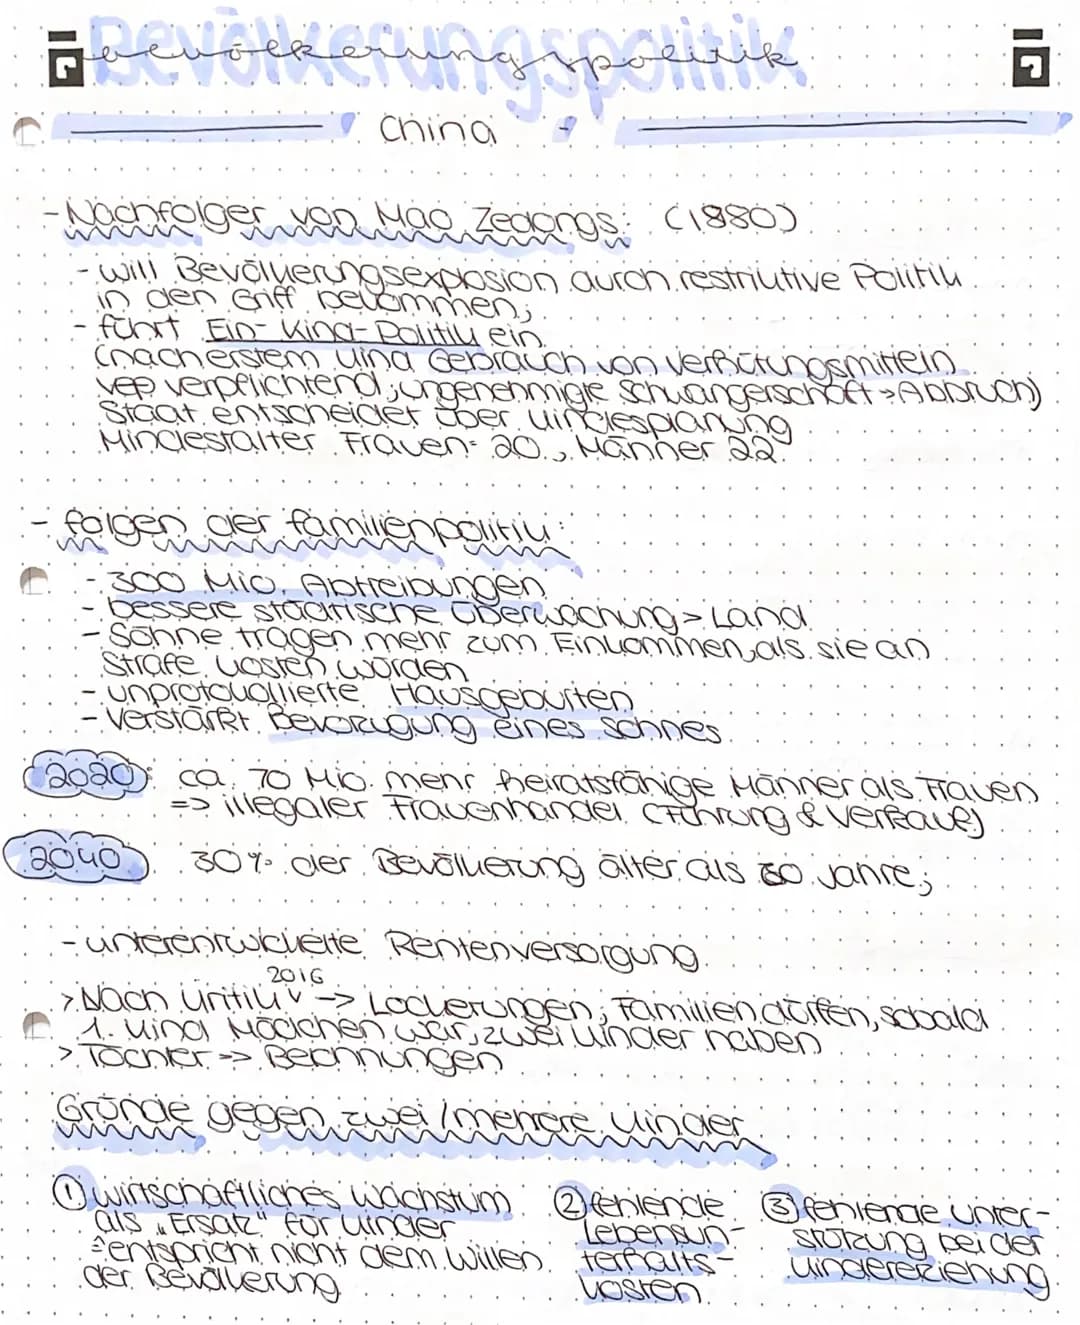 Bevölkerungspolitik
China
- Nachfolger von Mao Zedongs: (1980)
- will Bevölkerungsexplosion durch restriktive Politik
in den Griff bekommen;
- führt Ein-Kind-Politik ein
(nach erstem Kind Gebrauch von Verhütungsmitteln
verpflichtend; ungenehmigte Schwangerschaft → Abbruch)
Staat entscheidet über Kindesplanung
Mindestalter Frauen: 20, Männer 22.
- Folgen der Familienpolitik:
- 300 Mio. Abtreibungen
- bessere städtische Überwachung > Land
- Söhne tragen mehr zum Einkommen, als sie an
Strafe kosten würden
- unprotokollierte Hausgeburten
- verstärkt Bevorzugung eines Sohnes
2020: ca. 70 Mio. mehr heiratsfähige Männer als Frauen
=> illegaler Frauenhandel (& Verkauf)
2040 30% der Bevölkerung älter als 60 Jahre;
- unterentwickelte Rentenversorgung
2016
> Nach Kritik v -> Lockerungen; Familien dürfen, sobald
1. Kind Mädchen war, zwei Kinder haben
> Töchter => Belohnungen
Gründe gegen zwei/mehrere Kinder
① wirtschaftliches Wachstum
als "Ersatz" für Kinder
≙ entspricht nicht dem Willen
der Bevölkerung
② fehlende
Lebensun-
terhalts-
kosten
③ fehlende Unter-
stützung bei der
Kindererziehung